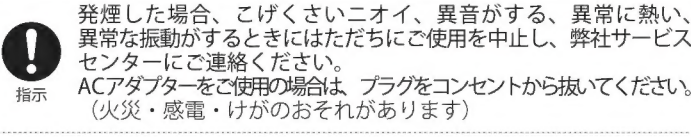 発煙した場合、こげくさいニオイ、異音がする、異常に熱い、
異常な振動がするときにはただちにご使用を中止し、弊社サービス
センターにご連絡ください。
ACアダプターをご使用の場合は、プラグをコンセントから抜いてください。
（火災・感電・けがのおそれがあります）
指示